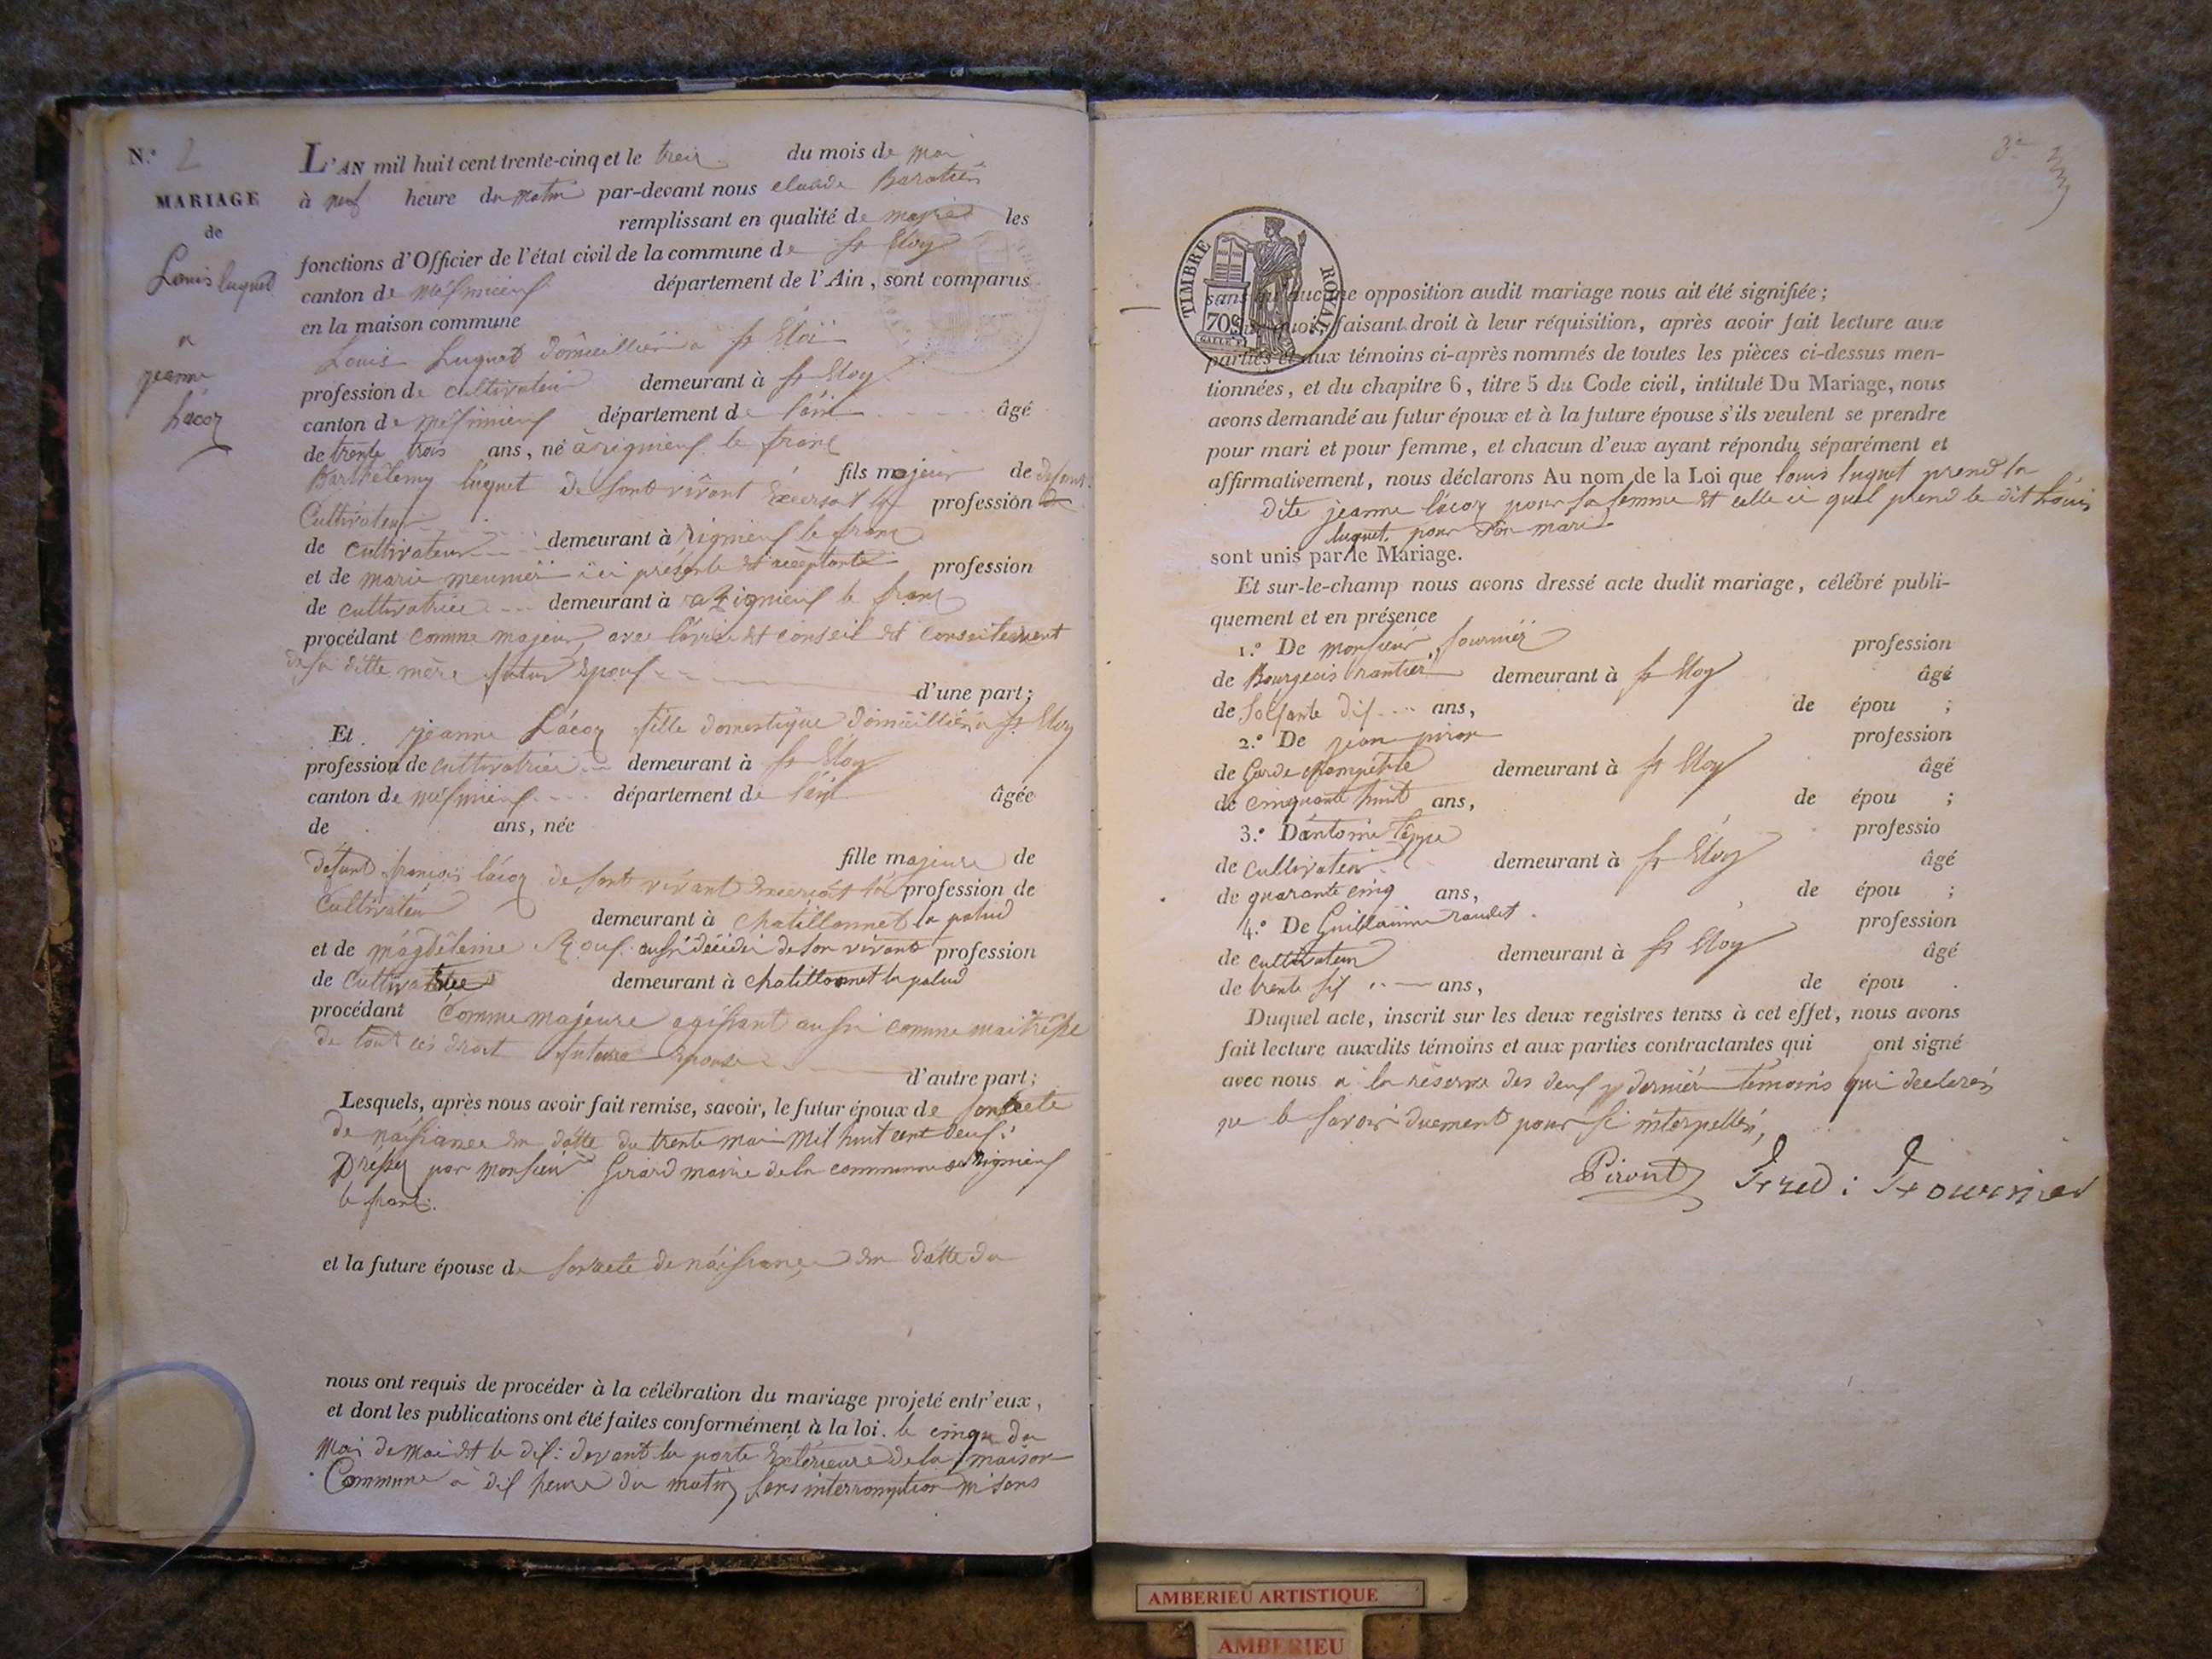 N.º 2
MARIAGE
de
Louis luquet
a
jeanne
Lacoz
L'AN mil huit cent trente-cinq et le treiz du mois de mai
à neuf heure du matin par-devant nous claude Baratier
remplissant en qualité de maire les
fonctions d'Officier de l'état civil de la commune de St Eloy
canton de méssimieux département de l'Ain, sont comparus
en la maison commune
Louis Luquet domicillier a St Eloi
profession de cultivateur demeurant à St Eloy
canton de méssimieux département de l'ain âgé
de trente trois ans, né a rignieux le franc
fils majeur de défunt
Barthelemy luquet de sont vivant exersant la profession de
Cultivateur
de cultivateur demeurant à Rignieux le franc
et de marie meunier ici présente et acceptante profession
de cultivatrice demeurant à a Rignieux le franc
procédant comme majeur, avec l'avis et conseil et conseitement
de sa ditte mère futur Epoux
d'une part;
Et jeanne Lácoz fille domestique domicillier a St Eloy
profession de cultivatrice demeurant à St Eloy
canton de méssimieux département de l'ain âgée
de ans, née
fille majeure de
défunt francois lácoz de sont vivant exercant la profession de
Cultivateur
demeurant à chatillonnet la palud
et de magdeleine Roux aussi décédée de son vivant profession
de cultivatrice demeurant à chatillonnet la palud
procédant comme majeure agissant aussi comme maitresse
de tout ces droit future Epouse
d'autre part;
Lesquels, après nous avoir fait remise, savoir, le futur époux de son acte
de naissance en datte du trente mai mil huit cent deux
Dressez par monsieur Girard maire de la commune de Rignieux
le franc.
et la future épouse de son acte de naissance en datte du
nous ont requis de procéder à la célébration du mariage projeté entr'eux,
et dont les publications ont été faites conformément à la loi. le cinqu du
moi de mai et le dix: devant la porte Extérieure de la maison
Commune a dix heure du matin sans interromption ni sans
sans qu'aucune opposition audit mariage nous ait été signifiée;
TIMBRE ROYAL
70 C
quoi, faisant droit à leur réquisition, après avoir fait lecture aux
parties et aux témoins ci-après nommés de toutes les pièces ci-dessus men-
tionnées, et du chapitre 6, titre 5 du Code civil, intitulé Du Mariage, nous
avons demandé au futur époux et à la future épouse s'ils veulent se prendre
pour mari et pour femme, et chacun d'eux ayant répondu séparément et
affirmativement, nous déclarons Au nom de la Loi que louis luquet prend la
dite jeanne lácoz pour sa femme et celle ci quel prend le dit Louis
luquet, pour son mari
sont unis par le Mariage.
Et sur-le-champ nous avons dressé acte dudit mariage, célébré publi-
quement et en présence
1.º De monsieur fournier profession
de Bourgeois rantier demeurant à St Eloy âgé
de soixante dix ans, de épou ;
2.º De jean piron profession
de Garde champêtre demeurant à St Eloy âgé
de cinquante huit ans, de épou ;
3.º Dantoine profession
de cultivateur demeurant à St Eloy âgé
de quarante cinq ans, de épou ;
4.º De Guillaume raudet profession
de cultivateur demeurant à St Eloy âgé
de trente six ans, de épou .
Duquel acte, inscrit sur les deux registres tenus à cet effet, nous avons
fait lecture auxdits témoins et aux parties contractantes qui ont signé
avec nous a la réserve des deux dernier témoins qui declarés
ne le savoir duement pour ce interpellés,
Pirout Fred: Fournier
AMBERIEU ARTISTIQUE
AMBERIEU